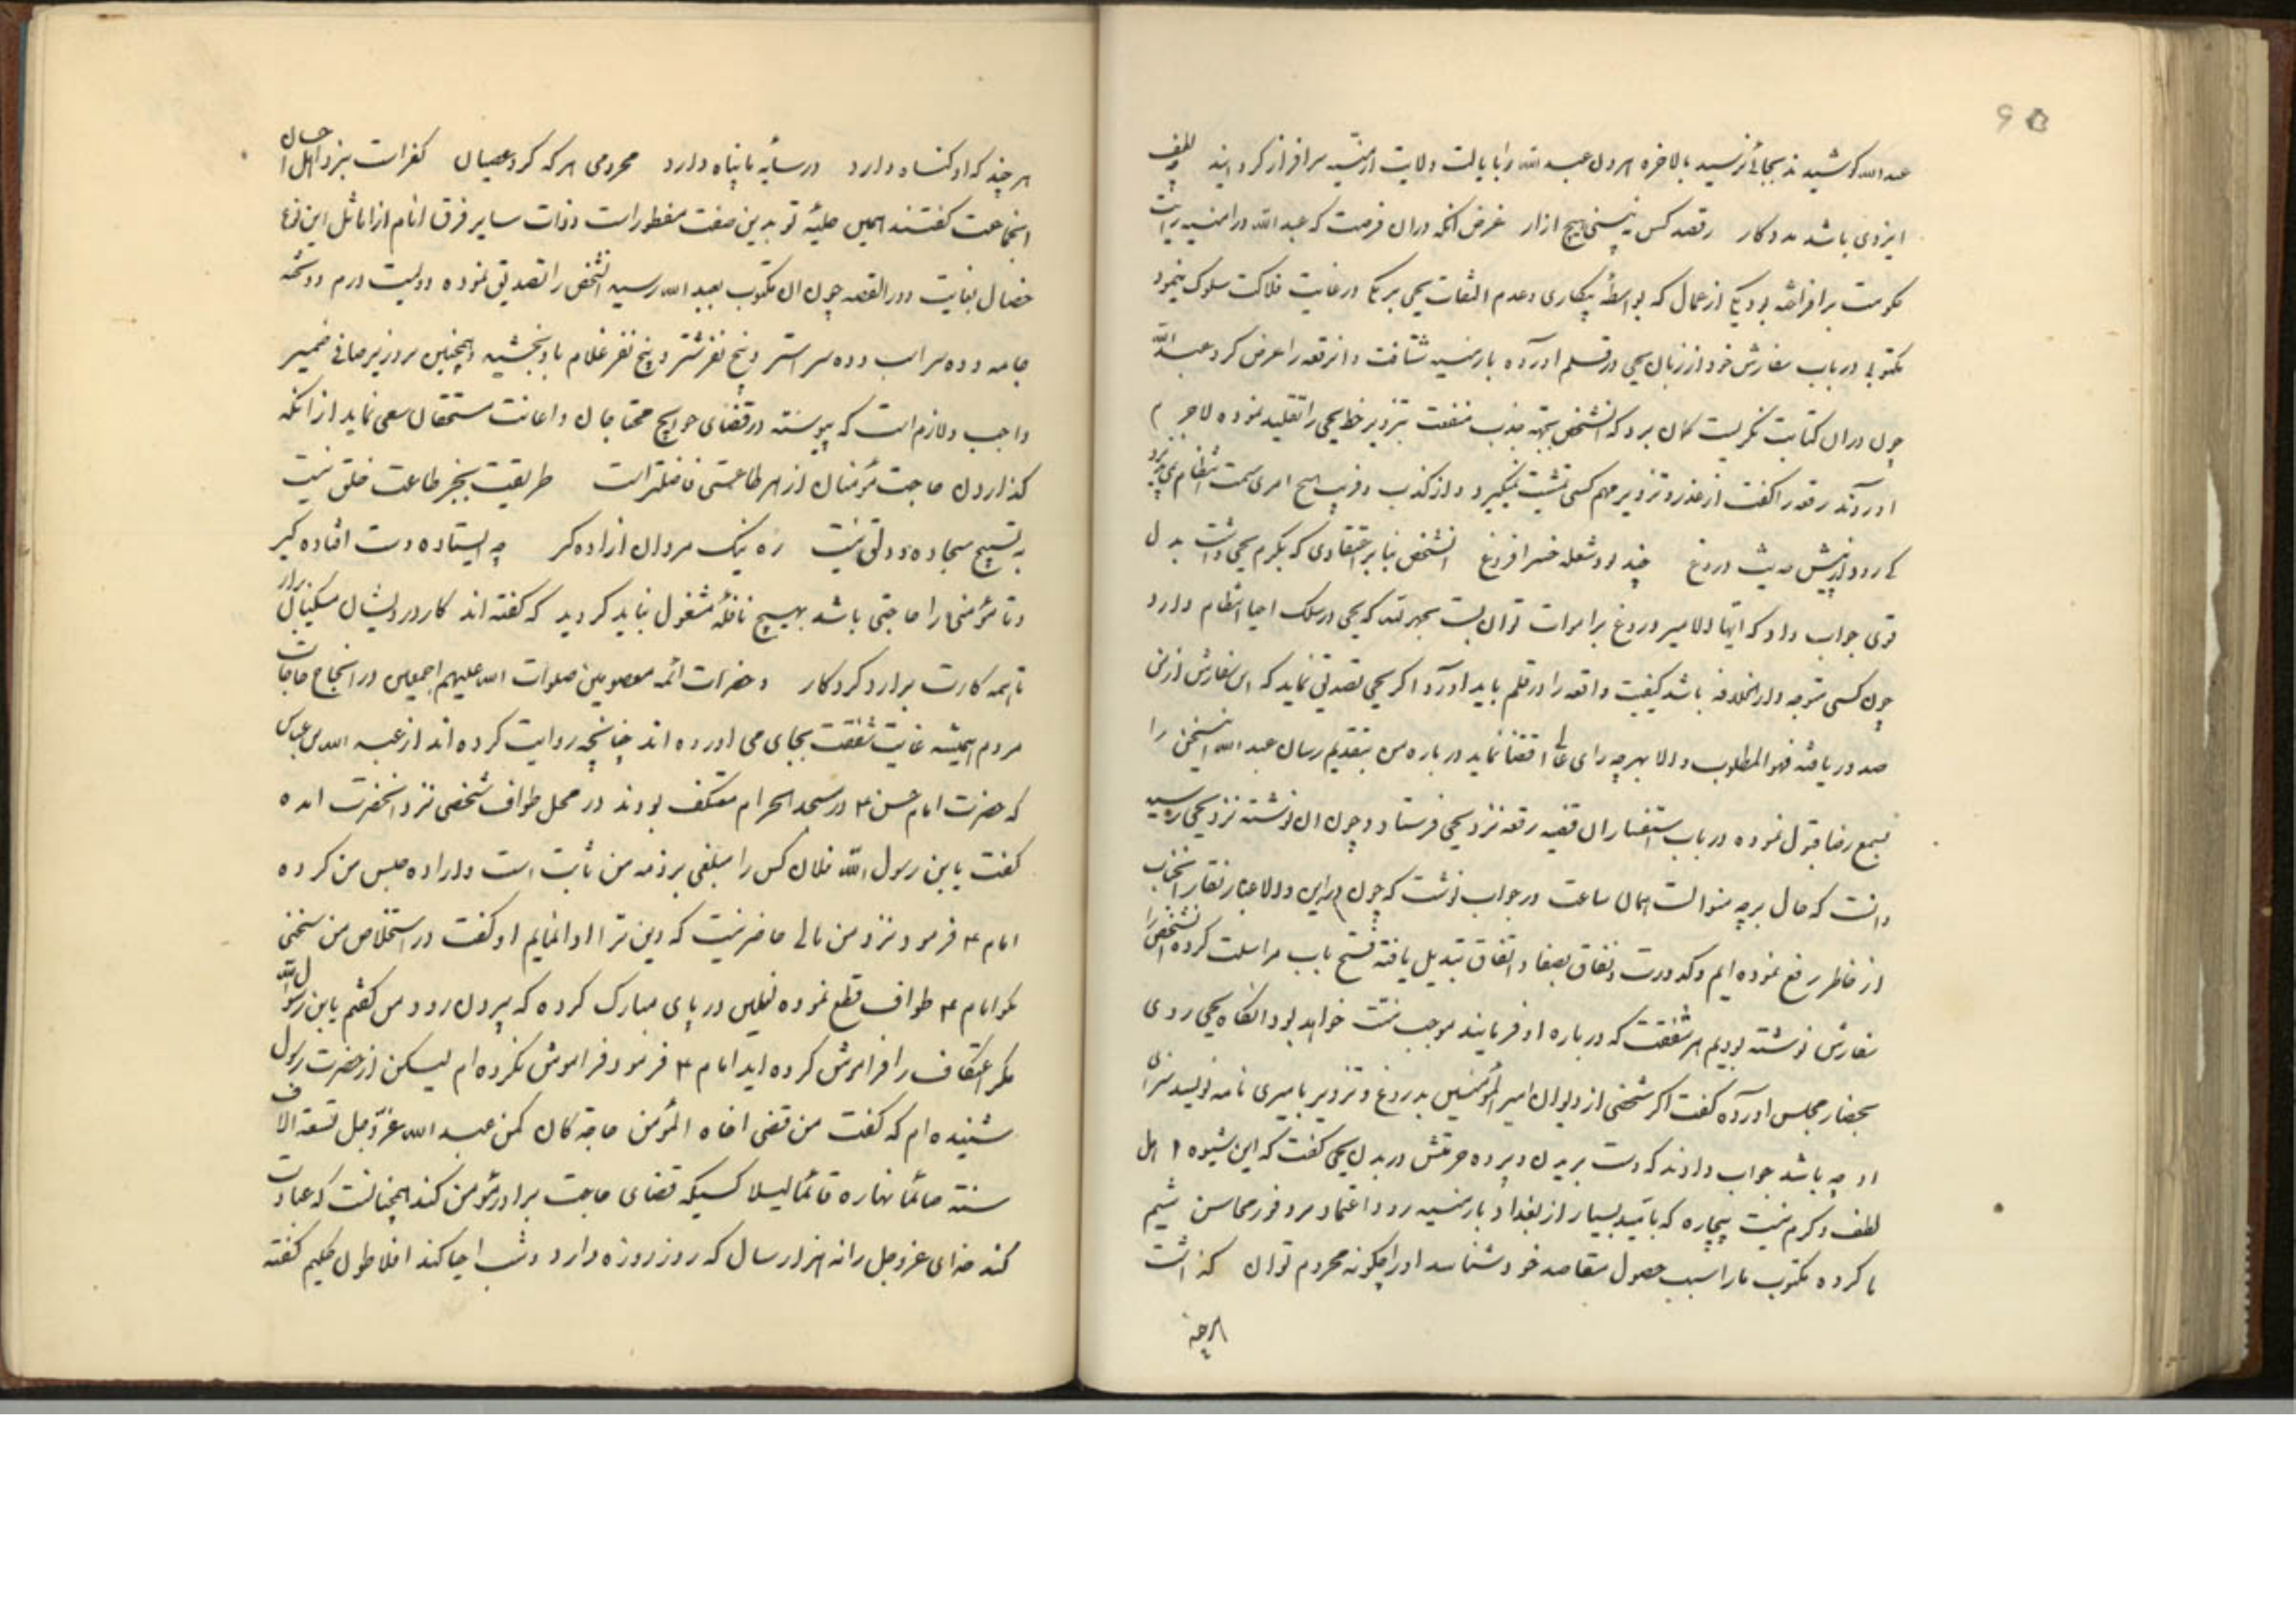 عبد الله کوشیدند بجائی نرسید بالاخره هرون عبد الله را بایالت ولایت ارمنیه سرافراز کردانید لطف
ایزدی باشد مددکار ز قصد کس نه بینی هیچ ازار غرض انکه دران فرصت که عبد الله در ارمنیه رایت
حکومت برافراخته بود یکی از عمال که بواسطهٔ بیکاری وعدم التفات یحیی برمکی در غایت فلاکت سلوک مینمود
مکتوبی در باب سفارش خود از زبان یحیی در قلم اورده بارمنیه شتافت وانرقعه را عرض کرد عبد الله
چون دران کتابت نکریست کمان برد که انشخص بجهة جذب منفعت بتزویر خط یحیی را تقلید نموده لاجرم
اورنده رقعه را کفت از غدر و تزویر مهم کسی تمشیت نمیکیرد و از کذب و فریب هیچ امری سمت انتظام نمی پذیرد
کی رود از پیش حدیث دروغ چند بود شعله خس را فروغ انشخص بنا بر اعتقادی که بکرم یحیی داشت بدل
قوی جواب داد که ایها الامیر دروغ بر اموات توان بست بحمد الله که یحیی در سلک احیا انتظام دارد
چون کسی متوجه دار الخلافه باشد کیفیت واقعه را در قلم باید اورد اکر یحیی تصدیق نماید که این سفارش از من
صدور یافته فهو المطلوب والا بهرچه رای عالی اقتضا نماید درباره من بتقدیم رسان عبد الله اینسخن را
بسمع رضا قبول نموده در باب استفسار ان قضیه رقعه نزد یحیی فرستاد و چون ان نوشته نزد یحیی رسید
دانست که حال بر چه منوالست همان ساعت در جواب نوشت که چون درین ولا غبار نقار انجناب
از خاطر رفع نموده ایم وکدورت و نفاق بصفا و اتفاق تبدیل یافته فتح باب مراسلت کرده انشخص را
سفارش نوشته بودیم هر شفقت که درباره او فرمایند موجب منت خواهد بود انکاه یحیی روی
بحضار مجلس اورده کفت اکر شخصی از دیوان امیر المؤمنین بدروغ و تزویر بامیری نامه نویسد سزای
او چه باشد جواب دادند که دست بریدن و پرده حرمتش دریدن یحیی کفت که این شیوه اهل
لطف وکرم نیست بیچاره که بامید بسیار از بغداد بارمنیه رود و اعتماد بر وفور محاسن شیم
ما کرده مکتوب ما را سبب حصول مقاصد خود شناسد او را چکونه محروم توان کذاشت
هرچند
هرچند که او کناه دارد در سایهٔ ما پناه دارد محرومی هرکه کرد عصیان کفرست بنزد اهل احسان
انجماعت کفتند همین حلیهٔ تو بدین صفت مفطورست وذات سایر فرق انام از اماثل این نوع
خصال بغایت دور القصه چون ان مکتوب بعبد الله رسید انشخص را تصدیق نموده دویست درم و دو تخته
جامه و ده سر اسب و ده سر استر و پنج نفر شتر و پنج نفر غلام باو بخشید وهمچنین بر وزیر صافی ضمیر
واجب ولازم است که پیوسته در قضای حوایج محتاجان و اعانت مستحقان سعی نماید از انکه
کذاردن حاجت مؤمنان از هر طاعتی فاضلترست طریقت بجز طاعت خلق نیست
به تسبیح و سجاده و دلق نیست ره نیک مردان ازاده کیر چه ایستاده دست افتاده کیر
وتا مؤمنی را حاجتی باشد بهیچ نافله مشغول نباید کردید که کفته اند کار درویشان مسکین برار
تا همه کارت برارد کردکار وحضرات ائمه معصومین صلوات الله علیهم اجمعین در انجاح حاجات
مردم همیشه غایت شفقت بجای می اورده اند چنانچه روایت کرده اند از عبد الله بن عباس
که حضرت امام حسن ع در مسجد الحرام معتکف بودند در محل طواف شخصی نزد انحضرت امده
کفت یا بن رسول الله فلان کس را مبلغی بر ذمه من ثابت است واراده حبس من کرده
امام ع فرمود نزد من مالی حاضر نیست که دین ترا ادا نمایم او کفت در استخلاص من سخنی
بکو امام ع طواف قطع نموده نعلین در پای مبارک کرده که بیرون رود من کفتم یابن رسول الله
مکر اعتکاف را فراموش کرده اید امام ع فرمود فراموش نکرده ام لیکن از حضرت رسول
شنیده ام که کفت من قضی اخاه المؤمن حاجة کان کمن عبد الله عز وجل تسعة الاف
سنته صائما نهاره قائما لیلا کسیکه قضای حاجت برادر مؤمن کند همچنانست که عبادت
کند خدای عز وجل را نه هزار سال که روز روزه دارد و شب احیا کند افلاطون حکیم کفته